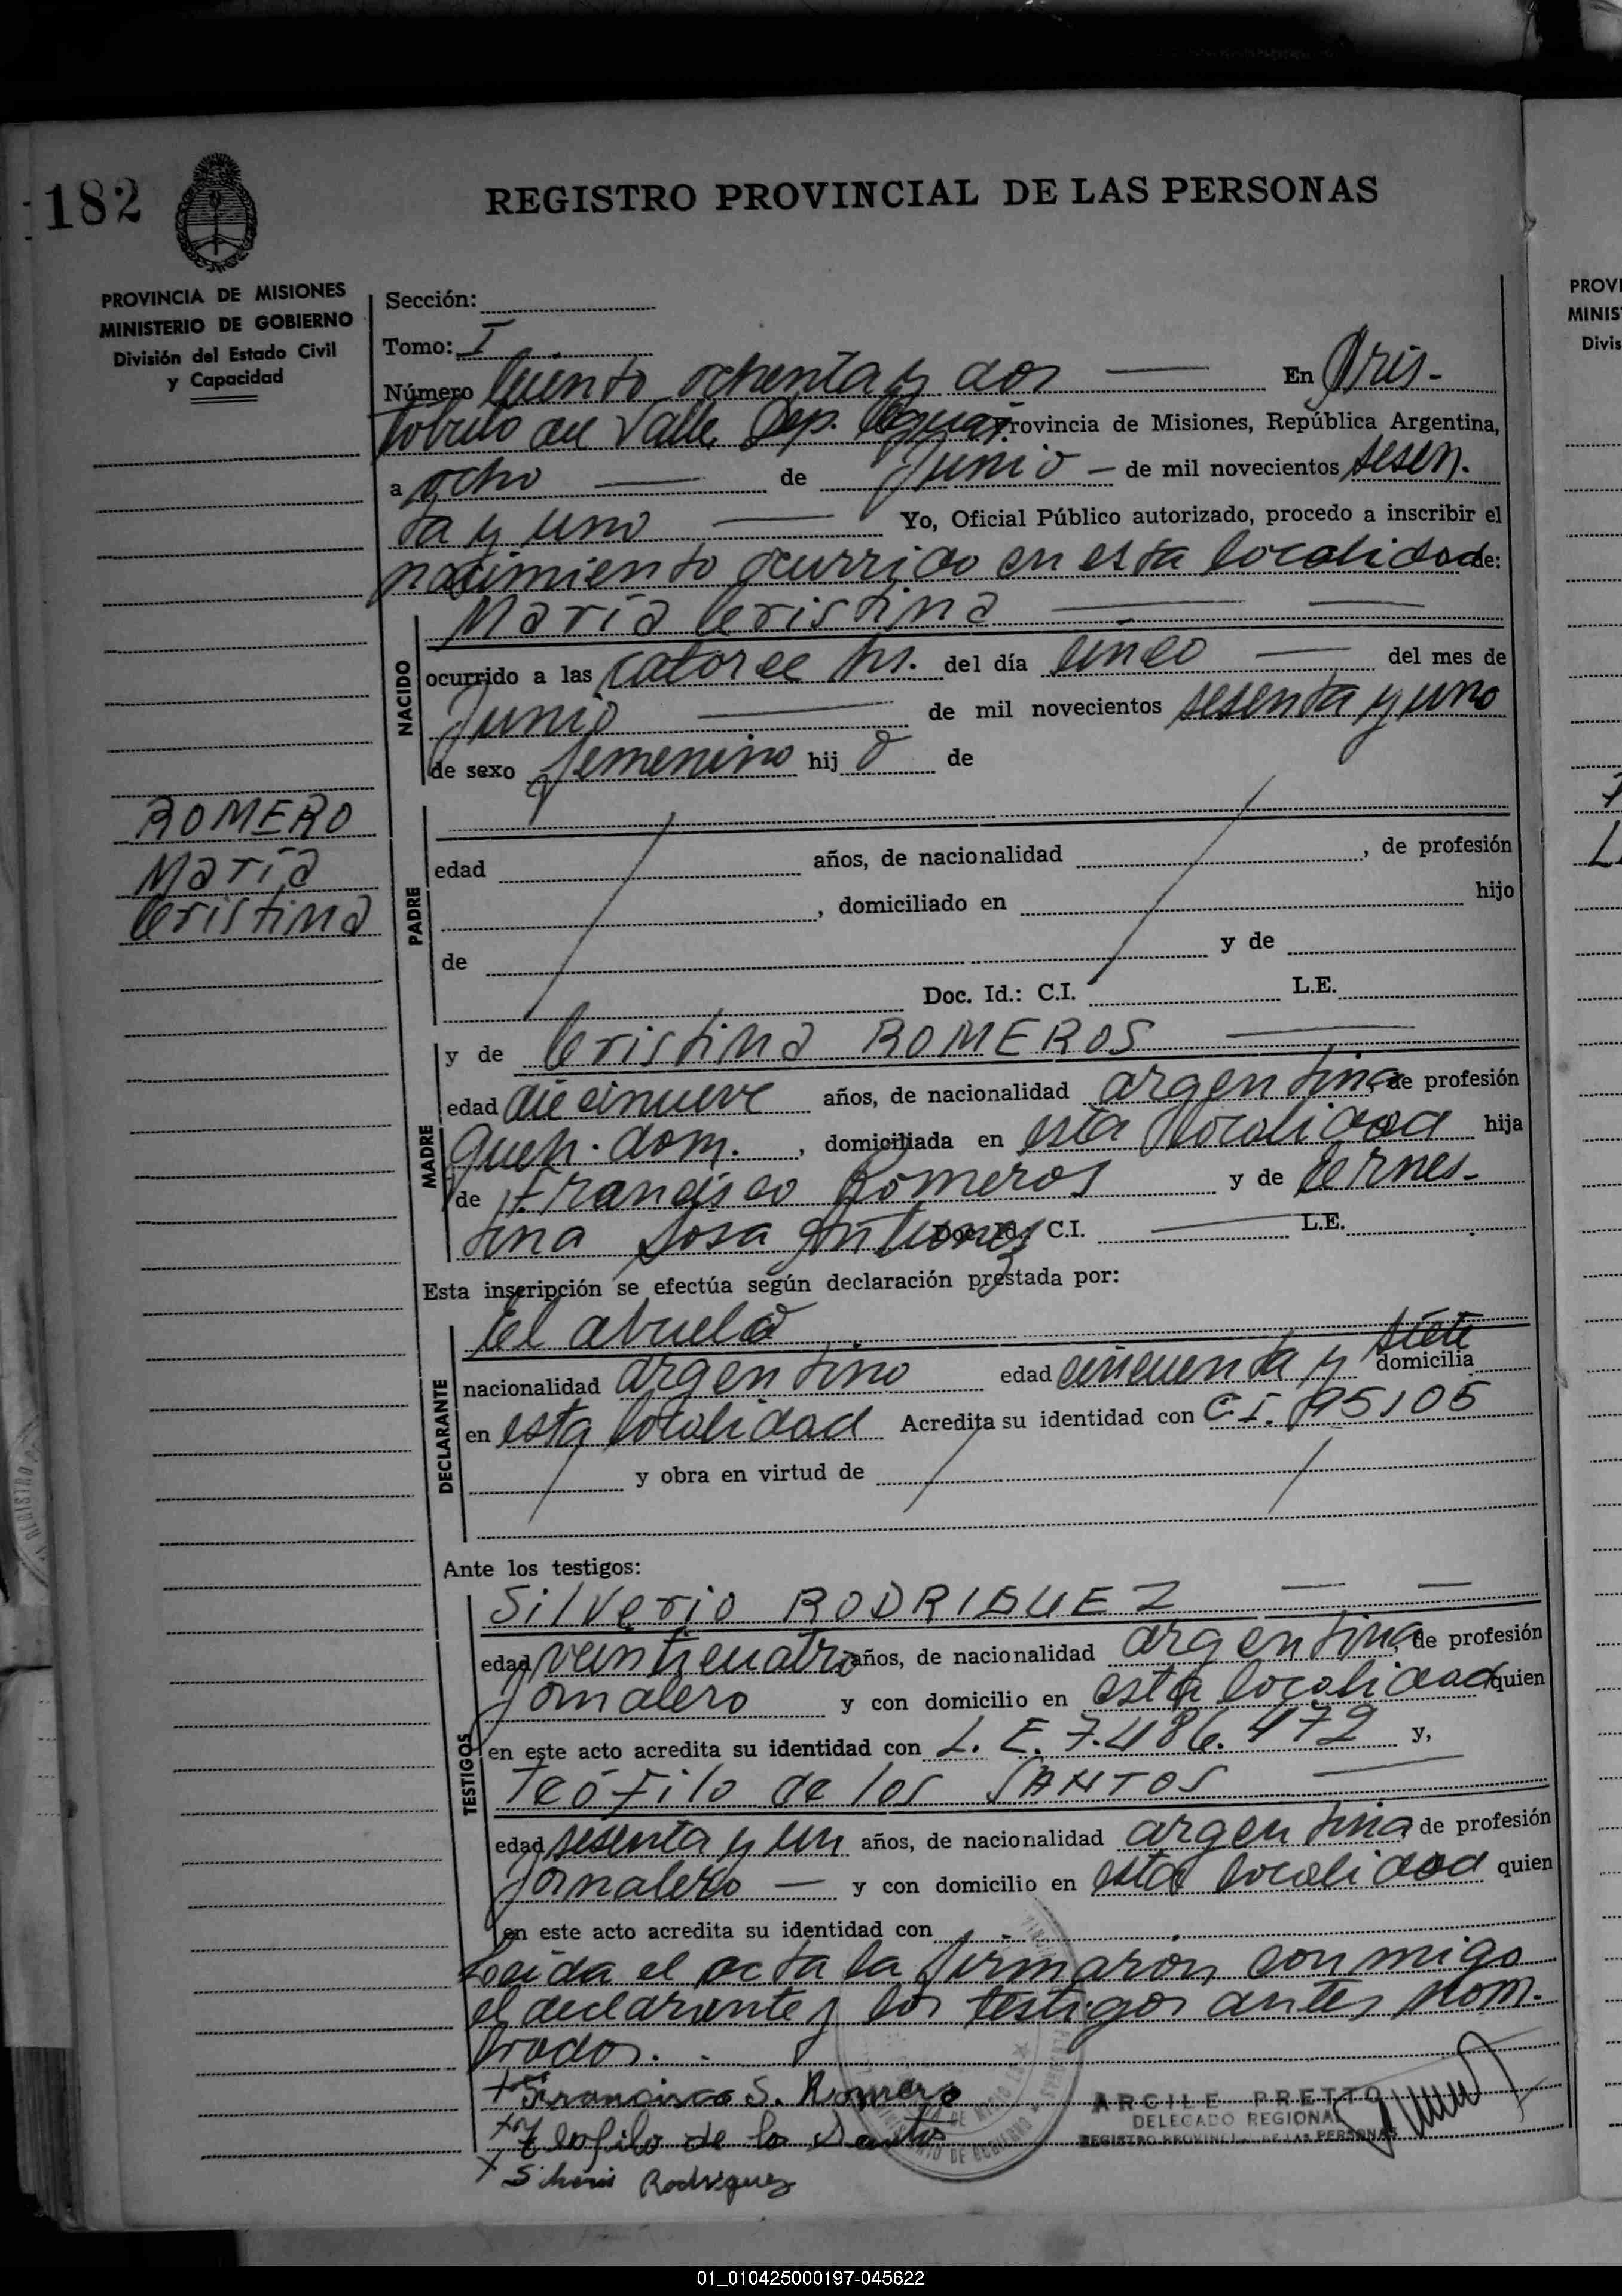 182
REGISTRO PROVINCIAL DE LAS PERSONAS
PROVINCIA DE MISIONES
MINISTERIO DE GOBIERNO
División del Estado Civil
y Capacidad
Sección:
Tomo: I
Número Ciento ochenta y dos — En Aris-
tóbulo del Valle Dep. Provincia de Misiones, República Argentina,
a ocho — de Junio — de mil novecientos sesen.
ta y uno — Yo, Oficial Público autorizado, procedo a inscribir el
nacimiento ocurrido en esta localidad de:
NACIDO
María Cristina — —
ocurrido a las catorce hs. del día cinco — del mes de
Junio — de mil novecientos sesenta y uno
de sexo femenino hij a de
ROMERO
María
Cristina
PADRE
edad años, de nacionalidad , de profesión
, domiciliado en hijo
de y de
Doc. Id.: C.I. L.E.
MADRE
y de Cristina ROMEROS —
edad diecinueve años, de nacionalidad argentina de profesión
queh. dom. , domiciliada en esta localidad hija
de Francisco Romeros y de Ernes-
tina Sosa C.I. — L.E.
Esta inscripción se efectúa según declaración prestada por:
DECLARANTE
El abuelo
nacionalidad argentino edad cincuenta y siete domicilia
en esta localidad Acredita su identidad con C.I. 95105
y obra en virtud de
Ante los testigos:
TESTIGOS
Silverio RODRIGUEZ — —
edad veinticuatro años, de nacionalidad argentina de profesión
Jornalero y con domicilio en esta localidad quien
en este acto acredita su identidad con L. E. 7.486.472 y,
Teófilo de los SANTOS —
edad sesenta y un años, de nacionalidad argentina de profesión
Jornalero — y con domicilio en esta localidad quien
en este acto acredita su identidad con
Leída el acta la firmaron conmigo
el declarante y los testigos antes nom-
brados.
Francisco S. Romero
Teofilo de los Santos
Silverio Rodriguez
ARGILE PRETTO
DELEGADO REGIONAL
REGISTRO PROVINCIAL DE LAS PERSONAS
PROVI
MINIS
Divis
01_010425000197-045622